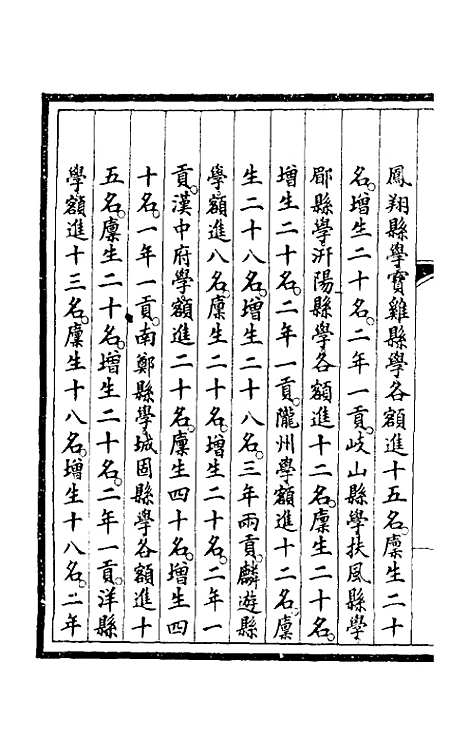 鳳翔縣學寶雞縣學各額進十五名。廩生二十
名。增生二十名。二年一貢。岐山縣學扶風縣學
郿縣學汧陽縣學各額進十二名。廩生二十名。
增生二十名。二年一貢。隴州學額進十二名。廩
生二十八名。增生二十八名。三年兩貢。麟遊縣
學額進八名。廩生二十名。增生二十名。二年一
貢。漢中府學額進二十名。廩生四十名。增生四
十名。一年一貢。南鄭縣學城固縣學各額進十
五名。廩生二十名。增生二十名。二年一貢。洋縣
學額進十三名。廩生十八名。增生十八名。二年